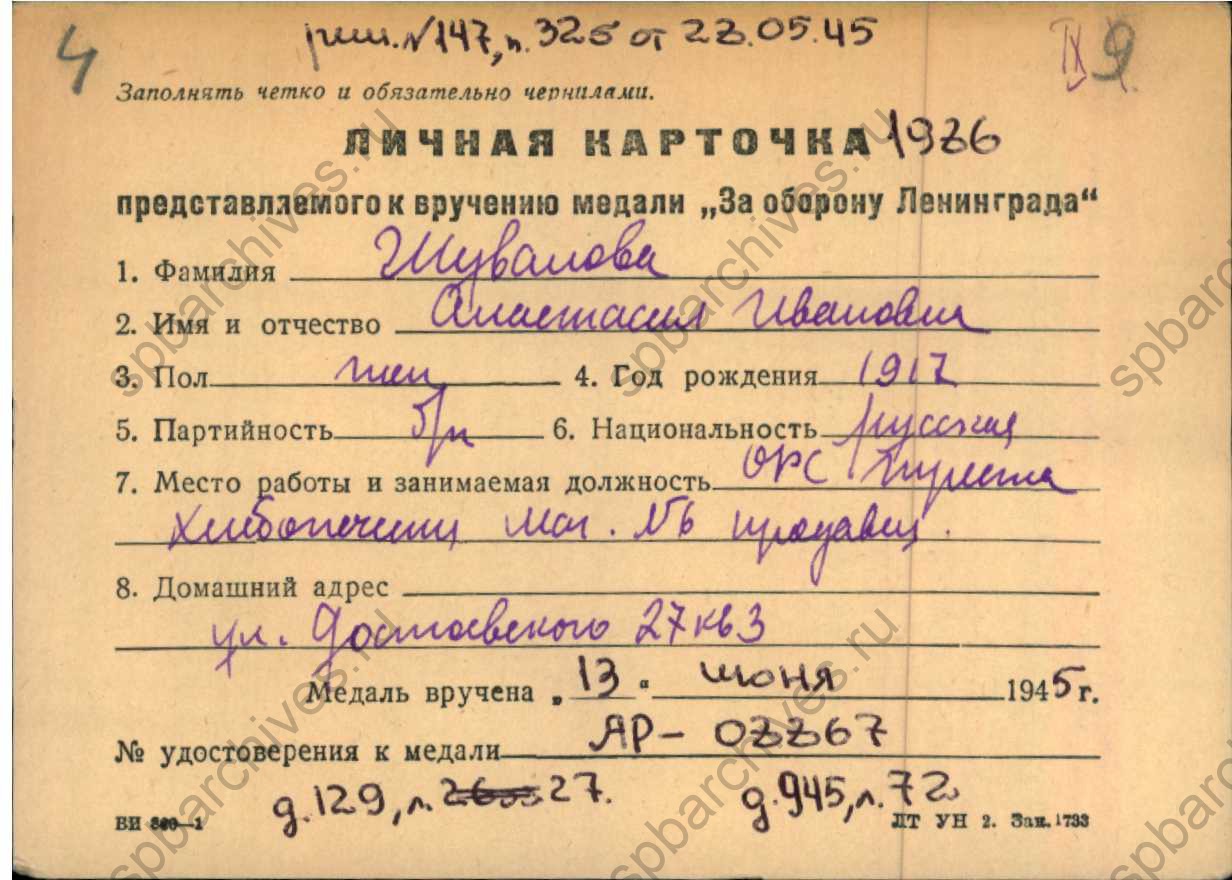 4
реш. №147, п. 325 от 23.05.45
IX 9
Заполнять четко и обязательно чернилами.
ЛИЧНАЯ КАРТОЧКА 1936
представляемого к вручению медали „За оборону Ленинграда“
1. Фамилия Шувалова
2. Имя и отчество Анастасия Ивановна
3. Пол жен. 4. Год рождения 1917
5. Партийность б/п 6. Национальность русская
7. Место работы и занимаемая должность ОРС Треста
Хлебопечения маг. №6 продавец.
8. Домашний адрес
ул. Достоевского 27 кв 3
Медаль вручена „13“ июня 1945 г.
№ удостоверения к медали АР – 03367
д. 129, л. 27. д. 945, л. 72
ВИ –1 ЛТ УН 2. Зак. 1733
spbarchives.ru